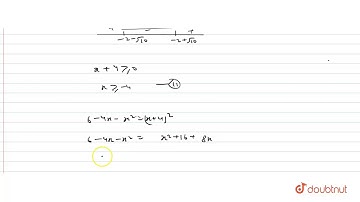 -2-√10 -2+√10
x + 4 ≥ 0
x ≥ -4 — (ii)
6 - 4x - x² = (x+4)²
6 - 4x - x² = x² + 16 + 8x
doubtnut